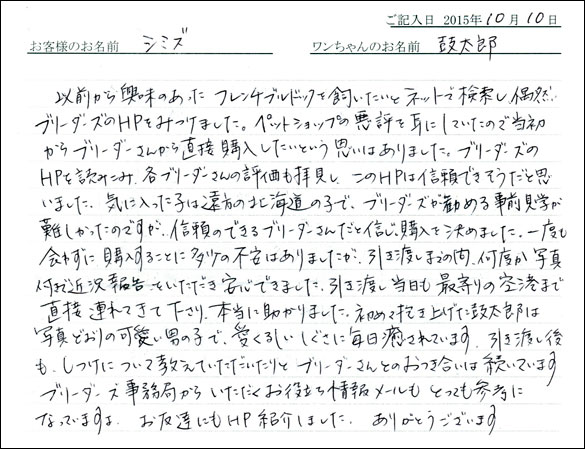 ご記入日 2015年10月10日
お客様のお名前 シミズ ワンちゃんのお名前 鼓太郎
以前から興味のあった フレンチブルドックを飼いたいと ネットで検索し、偶然、
ブリーダーズのHPをみつけました。ペットショップの悪評を耳にしていたので当初
からブリーダーさんから直接購入したいという思いはありました。ブリーダーズの
HPを読みこみ、各ブリーダーさんの評価も拝見し、このHPは信頼できそうだと思
いました。気に入った子は遠方の北海道の子で、ブリーダーズが勧める事前見学が
難しかったのですが、信頼のできるブリーダーさんだと信じ、購入を決めました。一度も
会わずに購入することに多少の不安はありましたが、引き渡しまでの間、何度か写真
付きで近況報告をいただき安心できました。引き渡し当日も最寄りの空港まで
直接連れてきて下さり、本当に助かりました。初めて抱き上げた鼓太郎は
写真どおりの可愛い男の子で、愛くるしいしぐさに毎日癒されています。引き渡し後
も、しつけについて教えていただいたりとブリーダーさんとのおつき合いは続いています
ブリーダーズ事務局からいただくお役立ち情報メールも とっても参考に
なっていますよ。お友達にもHP紹介しました。ありがとうございます